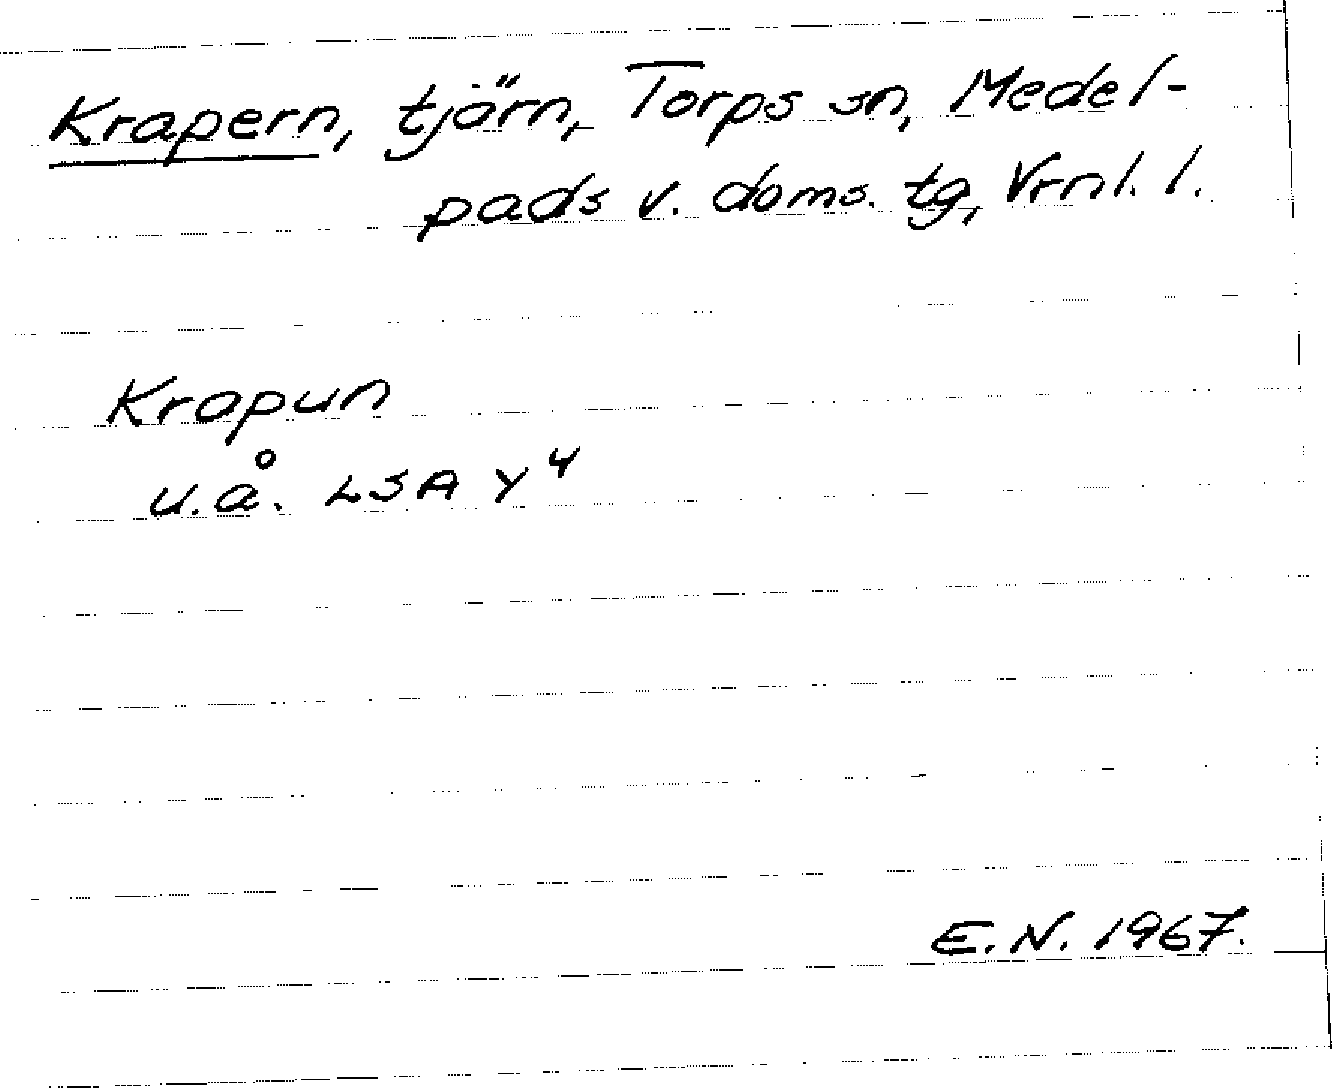 Krapern, tjärn, Torps sn, Medel-
pads v. doms. tg, Vrnl. l.
Krapun
u.å. LSA Y4
E.N. 1967.